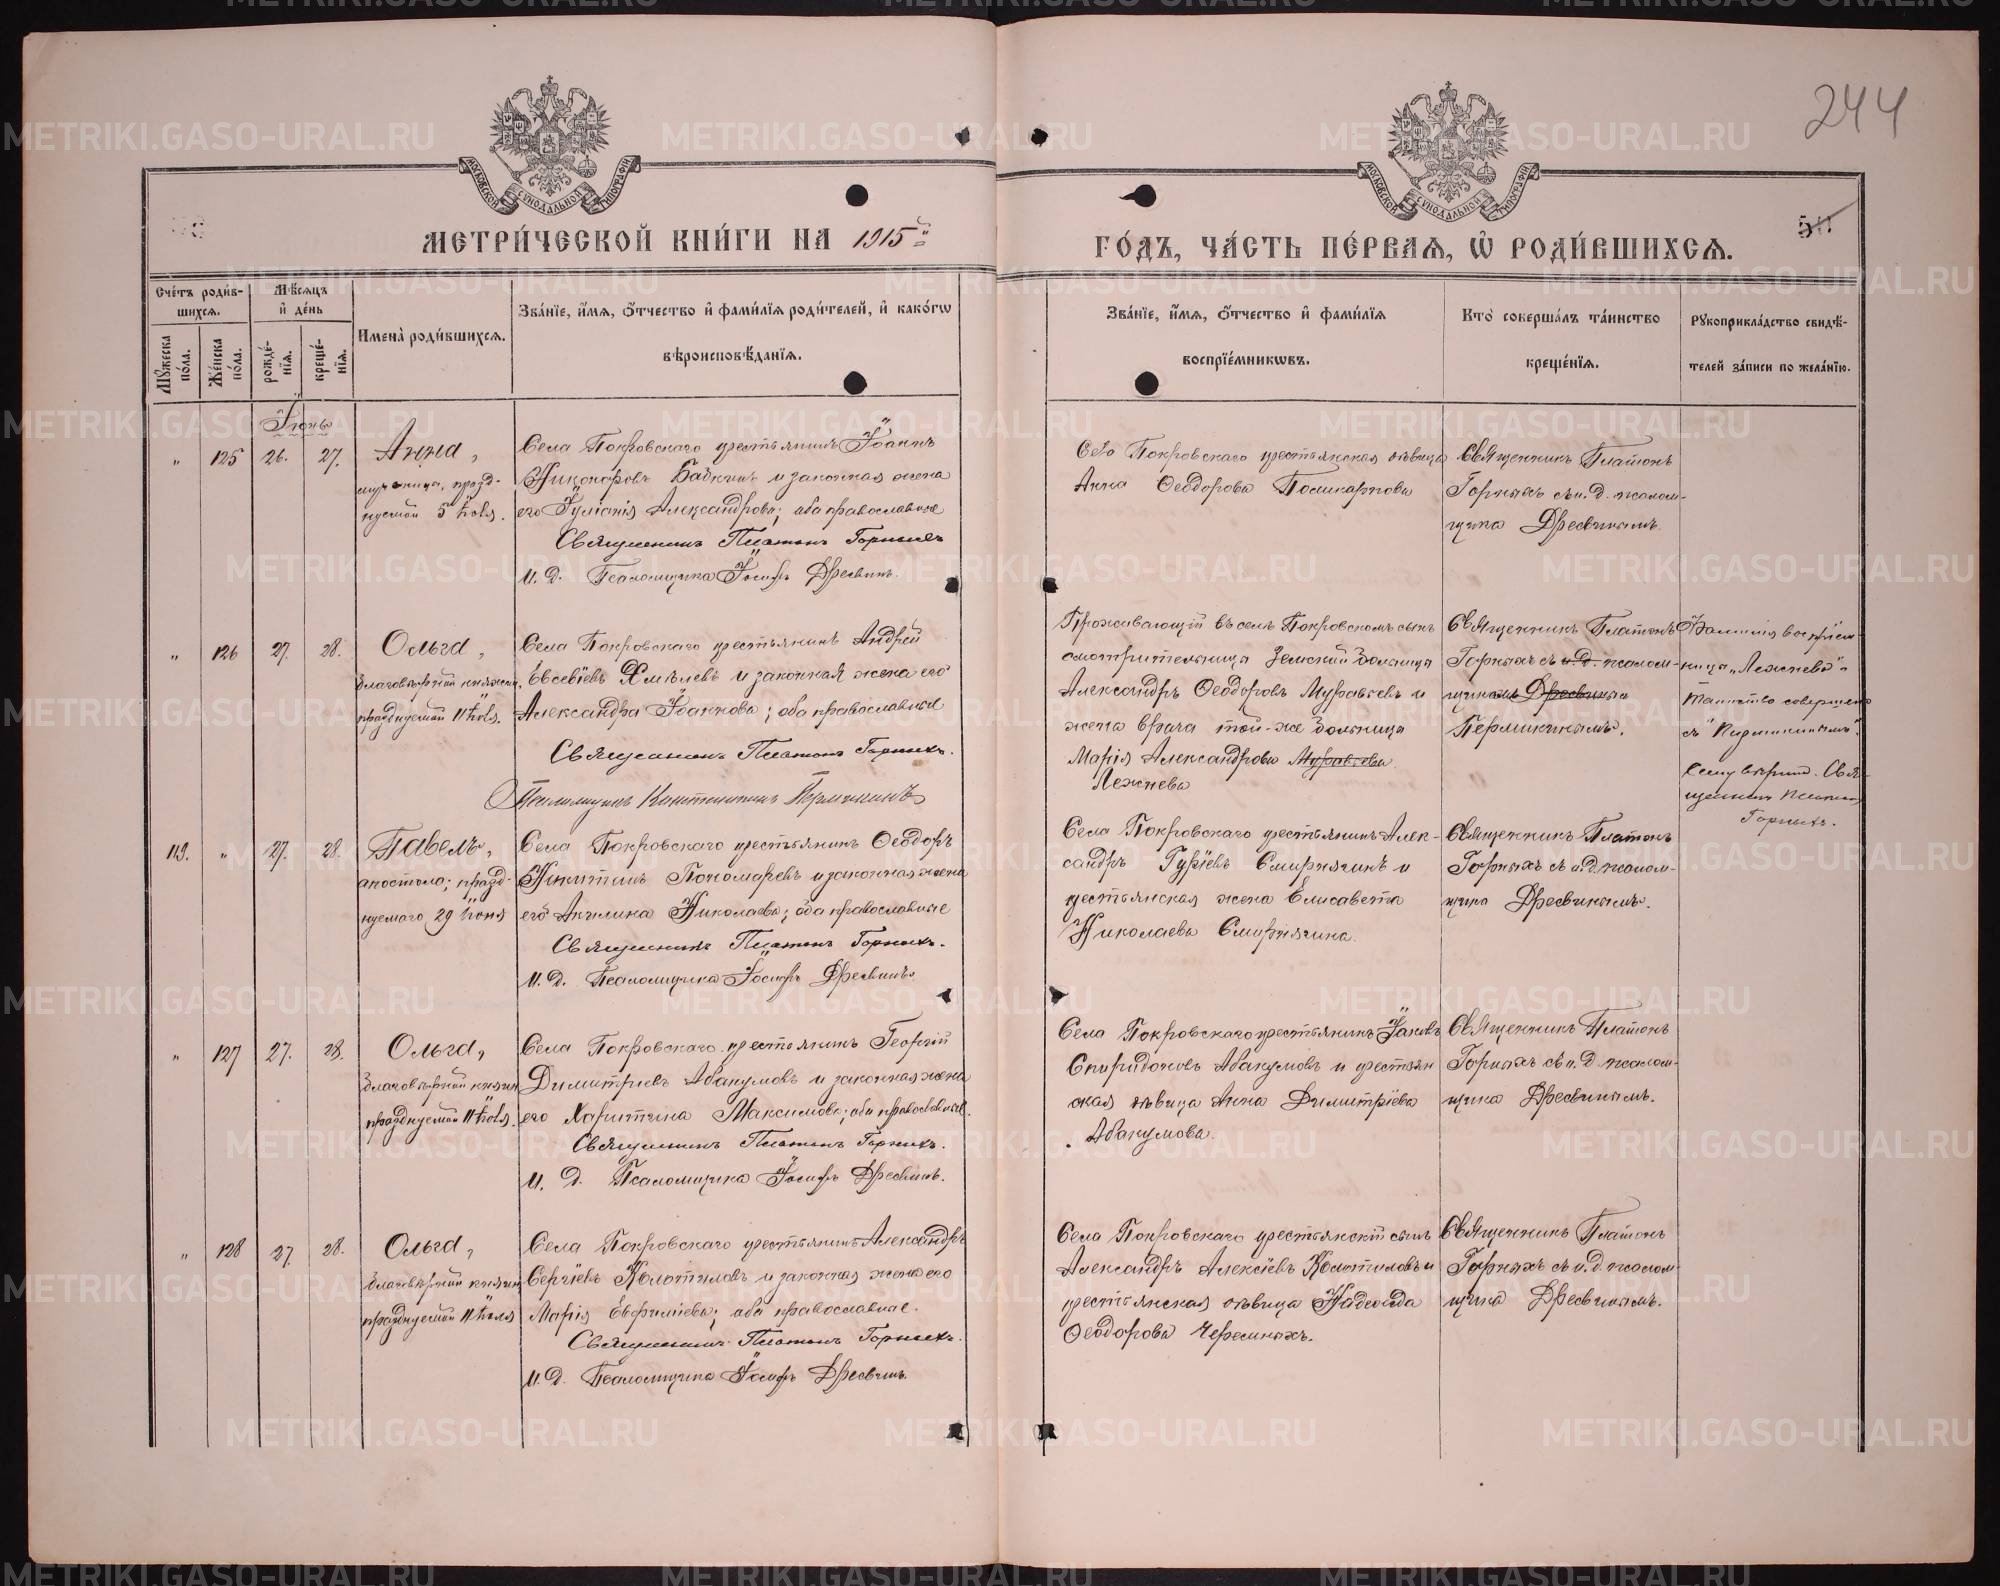 244
МОСКОВСКОЙ СѴНОДАЛЬНОЙ ТИПОГРАФІИ
МОСКОВСКОЙ СѴНОДАЛЬНОЙ ТИПОГРАФІИ
МЕТРИ́ЧЕСКОЙ КНИ́ГИ НА 1915й
ГО́ДЪ, ЧА́СТЬ ПЕ́РВАѦ, Ѡ҆ РОДИ́ВШИХСѦ.
Сче́тъ роди́в-
шихсѧ.
Мꙋ́жеска по́ла.
Же́нска по́ла.
Мѣ́сѧцъ и҆ де́нь
рожде́-нїѧ.
креще́-нїѧ.
Имена̀ роди́вшихсѧ.
Зва́нїе, и҆́мѧ, ѻ҆́тчество и҆ фами́лїѧ роди́телей, и҆ како́гѡ
вѣроисповѣ́данїѧ.
Зва́нїе, и҆́мѧ, ѻ҆́тчество и҆ фами́лїѧ
воспрїе́мникѡвъ.
Кто̀ соверша́лъ та́инство
креще́нїѧ.
Рꙋкоприкла́дство свидѣ́-
телей за́писи по жела́нїю.
Іюнь
" 125 26. 27. Анна,
мученица, празд-
нуемой 5 Іюля.
Села Покровскаго крестьянинъ Іоаннъ
Никоноровъ Бабкинъ и законная жена
его Іуліанія Александрова; оба православные
Священникъ Платонъ Горныхъ
И. Д. Псаломщика Іосифъ Дресвинъ.
Село Покровскаго крестьянская дѣвица
Анна Ѳеодорова Поликарпова
Священникъ Платонъ
Горныхъ съ и. д. псалом-
щика Дресвинымъ.
" 126 27. 28. Ольга,
благовѣрной княгин.
празднуемой 11 Іюля.
Села Покровскаго крестьянинъ Андрей
Евсевіевъ Хмѣлевъ и законная жена его
Александра Іоаннова; оба православные
Священникъ Платонъ Горныхъ.
Псаломщикъ Константинъ Пермикинъ
Проживающій въ селѣ Покровскомъ сынъ
смотрительницы Земской больницы
Александръ Ѳеодоровъ Муравьевъ и
жена врача той-же больницы
Марія Александрова Муравьева
Лежнева
Священникъ Платонъ
Горныхъ съ и. д. псалом-
щикомъ Дресвинымъ
Пермикинымъ.
Фамилія воспріем-
ницы „Лежнева“
таинство совершено
съ „Пермикинымъ“.
Священникъ Платонъ
Горныхъ.
119. " 27. 28. Павелъ,
апостола; празд-
нуемаго 29 Іюня
Села Покровскаго крестьянинъ Ѳеодоръ
Никитинъ Пономаревъ и законная жена
его Акилина Николаева; оба православные
Священникъ Платонъ Горныхъ.
И. Д. Псаломщика Іосифъ Дресвинъ.
Села Покровскаго крестьянинъ Алек-
сандръ Гуріевъ Смирнягинъ и
крестьянская жена Елисавета
Николаева Смирнягина.
Священникъ Платонъ
Горныхъ съ и. д. псалом-
щика Дресвинымъ.
" 127 27. 28. Ольга,
благовѣрной княгин.
празднуемой 11 Іюля.
Села Покровскаго крестьянинъ Георгій
Димитріевъ Абакумовъ и законная жена
его Харитина Максимова; оба православные.
Священникъ Платонъ Горныхъ.
И. Д. Псаломщика Іосифъ Дресвинъ.
Села Покровскаго крестьянинъ Іаковъ
Спиридоновъ Абакумовъ и крестьян
ская дѣвица Анна Димитріева
Абакумова.
Священникъ Платонъ
Горныхъ съ и. д. псалом-
щика Дресвинымъ.
" 128 27. 28. Ольга,
благовѣрной княгин.
празднуемой 11 Іюля
Села Покровскаго крестьянинъ Александръ
Сергіевъ Колотиловъ и законная жена его
Марія Евфиміева; оба православные.
Священникъ Платонъ Горныхъ.
И. Д. Псаломщика Іосифъ Дресвинъ.
Села Покровскаго крестьянскій сынъ
Александръ Алексіевъ Колотиловъ и
крестьянская дѣвица Надежда
Ѳеодорова Черемныхъ.
Священникъ Платонъ
Горныхъ съ и. д. псалом-
щика Дресвинымъ.
METRIKI.GASO-URAL.RU